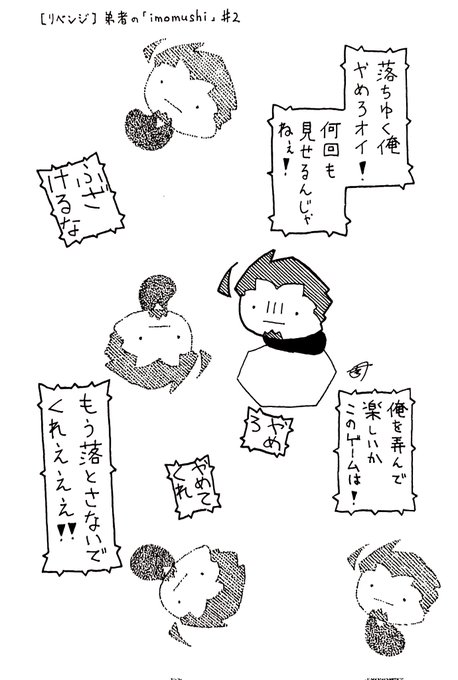 [リベンジ] 弟者の「imomushi」#2
落ちゆく俺
やめろオイ！
何回も
見せるんじゃ
ねぇ！
ふざ
けるな
俺を弄んで
楽しいか
このゲームは！
やめ
ろ
やめて
くれ
もう落とさないで
くれぇぇぇ！！